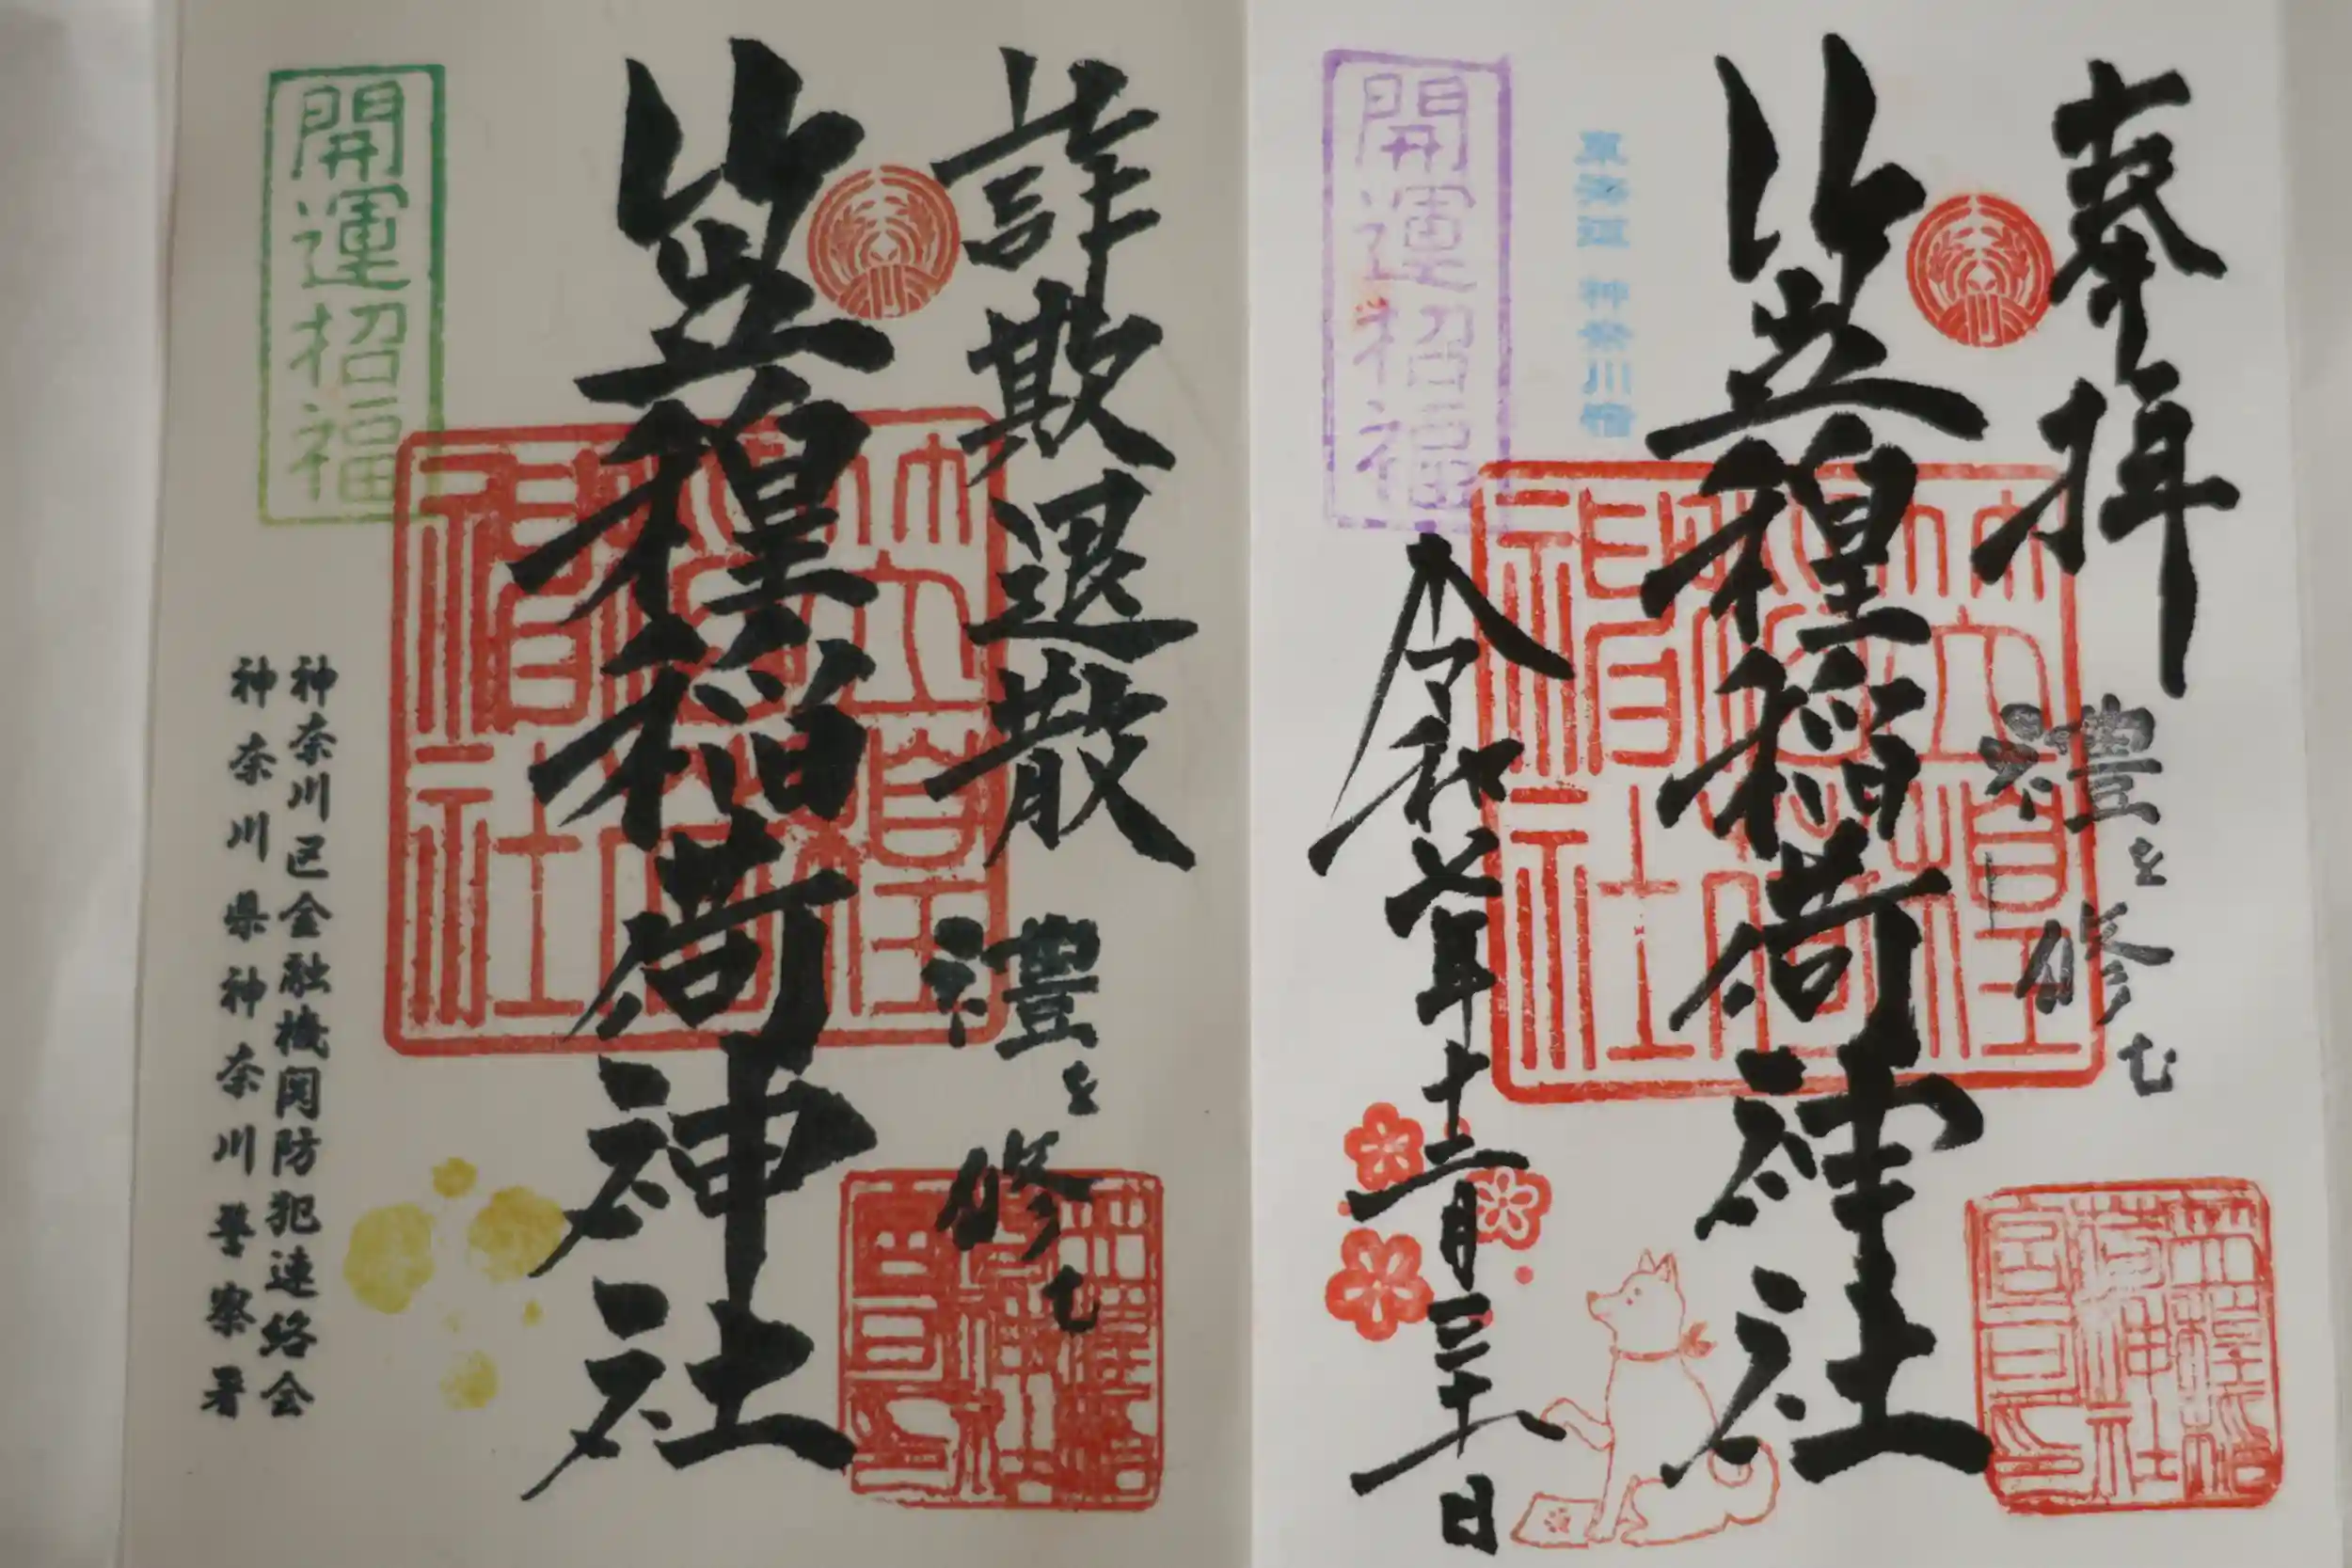 奉拝
禮を修む
笠䅣稲荷神社
東海道 神奈川宿
開運招福
令和六年十二月三十一日
詐欺退散
禮を修む
笠䅣稲荷神社
開運招福
神奈川区金融機関防犯連絡会
神奈川県神奈川警察署